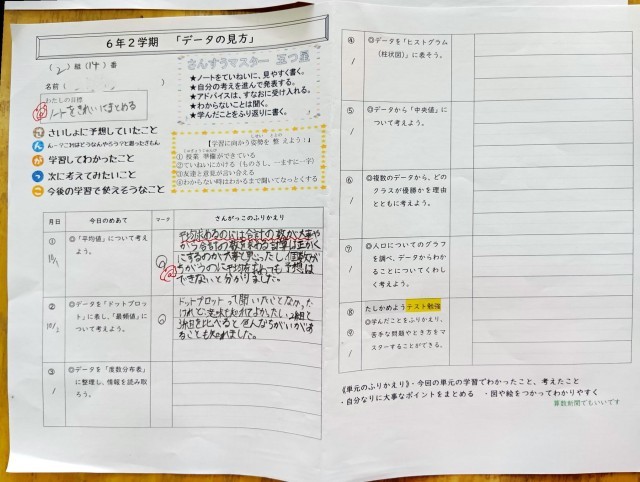 6年2学期 「データの見方」
(2)組(14)番
名前(
わたしの目標
ノートをきれいにまとめる
さいしょに予想していたこと
ん−？これはどうなんやろう？と思ったさんすう
が 学習してわかったこと
っ 次に考えてみたいこと
こ 今後の学習で使えそうなこと
さんすうマスター 五つ星
★ノートをていねいに、見やすく書く。
★自分の考えを進んで発表する。
★アドバイスは、すなおに受け入れる。
★わからないことは聞く。
★学んだことをふり返りに書く。
【学習に向かう姿勢を整えよう！】
①授業準備ができている
②ていねいにかける(ものさし、一ますに一字)
③友達と意見が言い合える
④わからない時はわかるまで聞いてなっとくする
月日 今日のめあて マーク さんがっこのふりかえり
① ◎「平均値」について考えよう。
平均求めるのには合計の数が大事や
から合計の数を求める計算は正かく
にするのが大事と思ったし、個数が
ちがうのに平均
できないと分かりました。
② ◎データを「ドットプロット」に表し、「最頻値」について考えよう。
10/2
ドットプロットって聞いたことなかった
けれど意味を知れてよかったし、2組と
3組を比べると
ることも知れました。
③ ◎データを「度数分布表」に整理し、情報を読み取ろう。
/
④ ◎データを「ヒストグラム(柱状図)」に表そう。
/
⑤ ◎データから「中央値」について考えよう。
/
⑥ ◎複数のデータから、どのクラスが優勝かを理由とともに考えよう。
/
⑦ ◎人口についてのグラフを調べ、データからわかることについてくわしく考えよう。
/
⑧ たしかめよう テスト勉強
⑨ ◎学んだことをふりかえり、苦手な問題やとき方をマスターすることができる。
/
《単元のふりかえり》・今回の単元の学習でわかったこと、考えたこと
・自分なりに大事なポイントをまとめる ・図や絵をつかってわかりやすく
算数新聞でもいいです